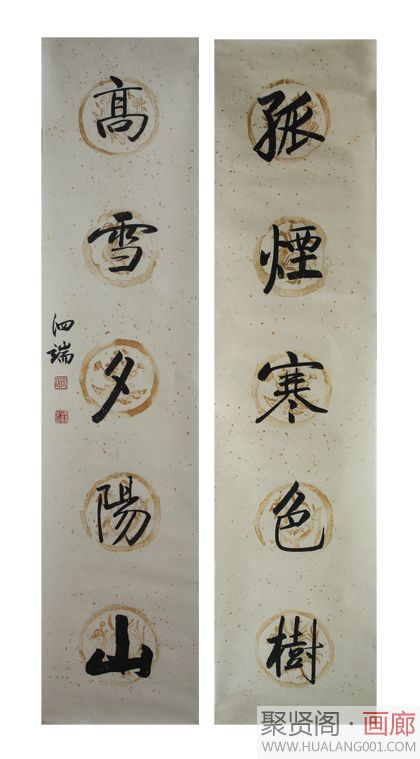 孤煙寒色樹
高雪夕陽山
泗端
聚贤阁·画廊
WWW.HUALANG001.COM